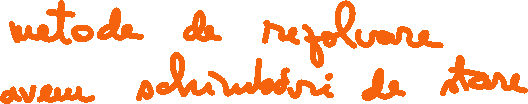 metode de rezolvare
avem schimbări de stare